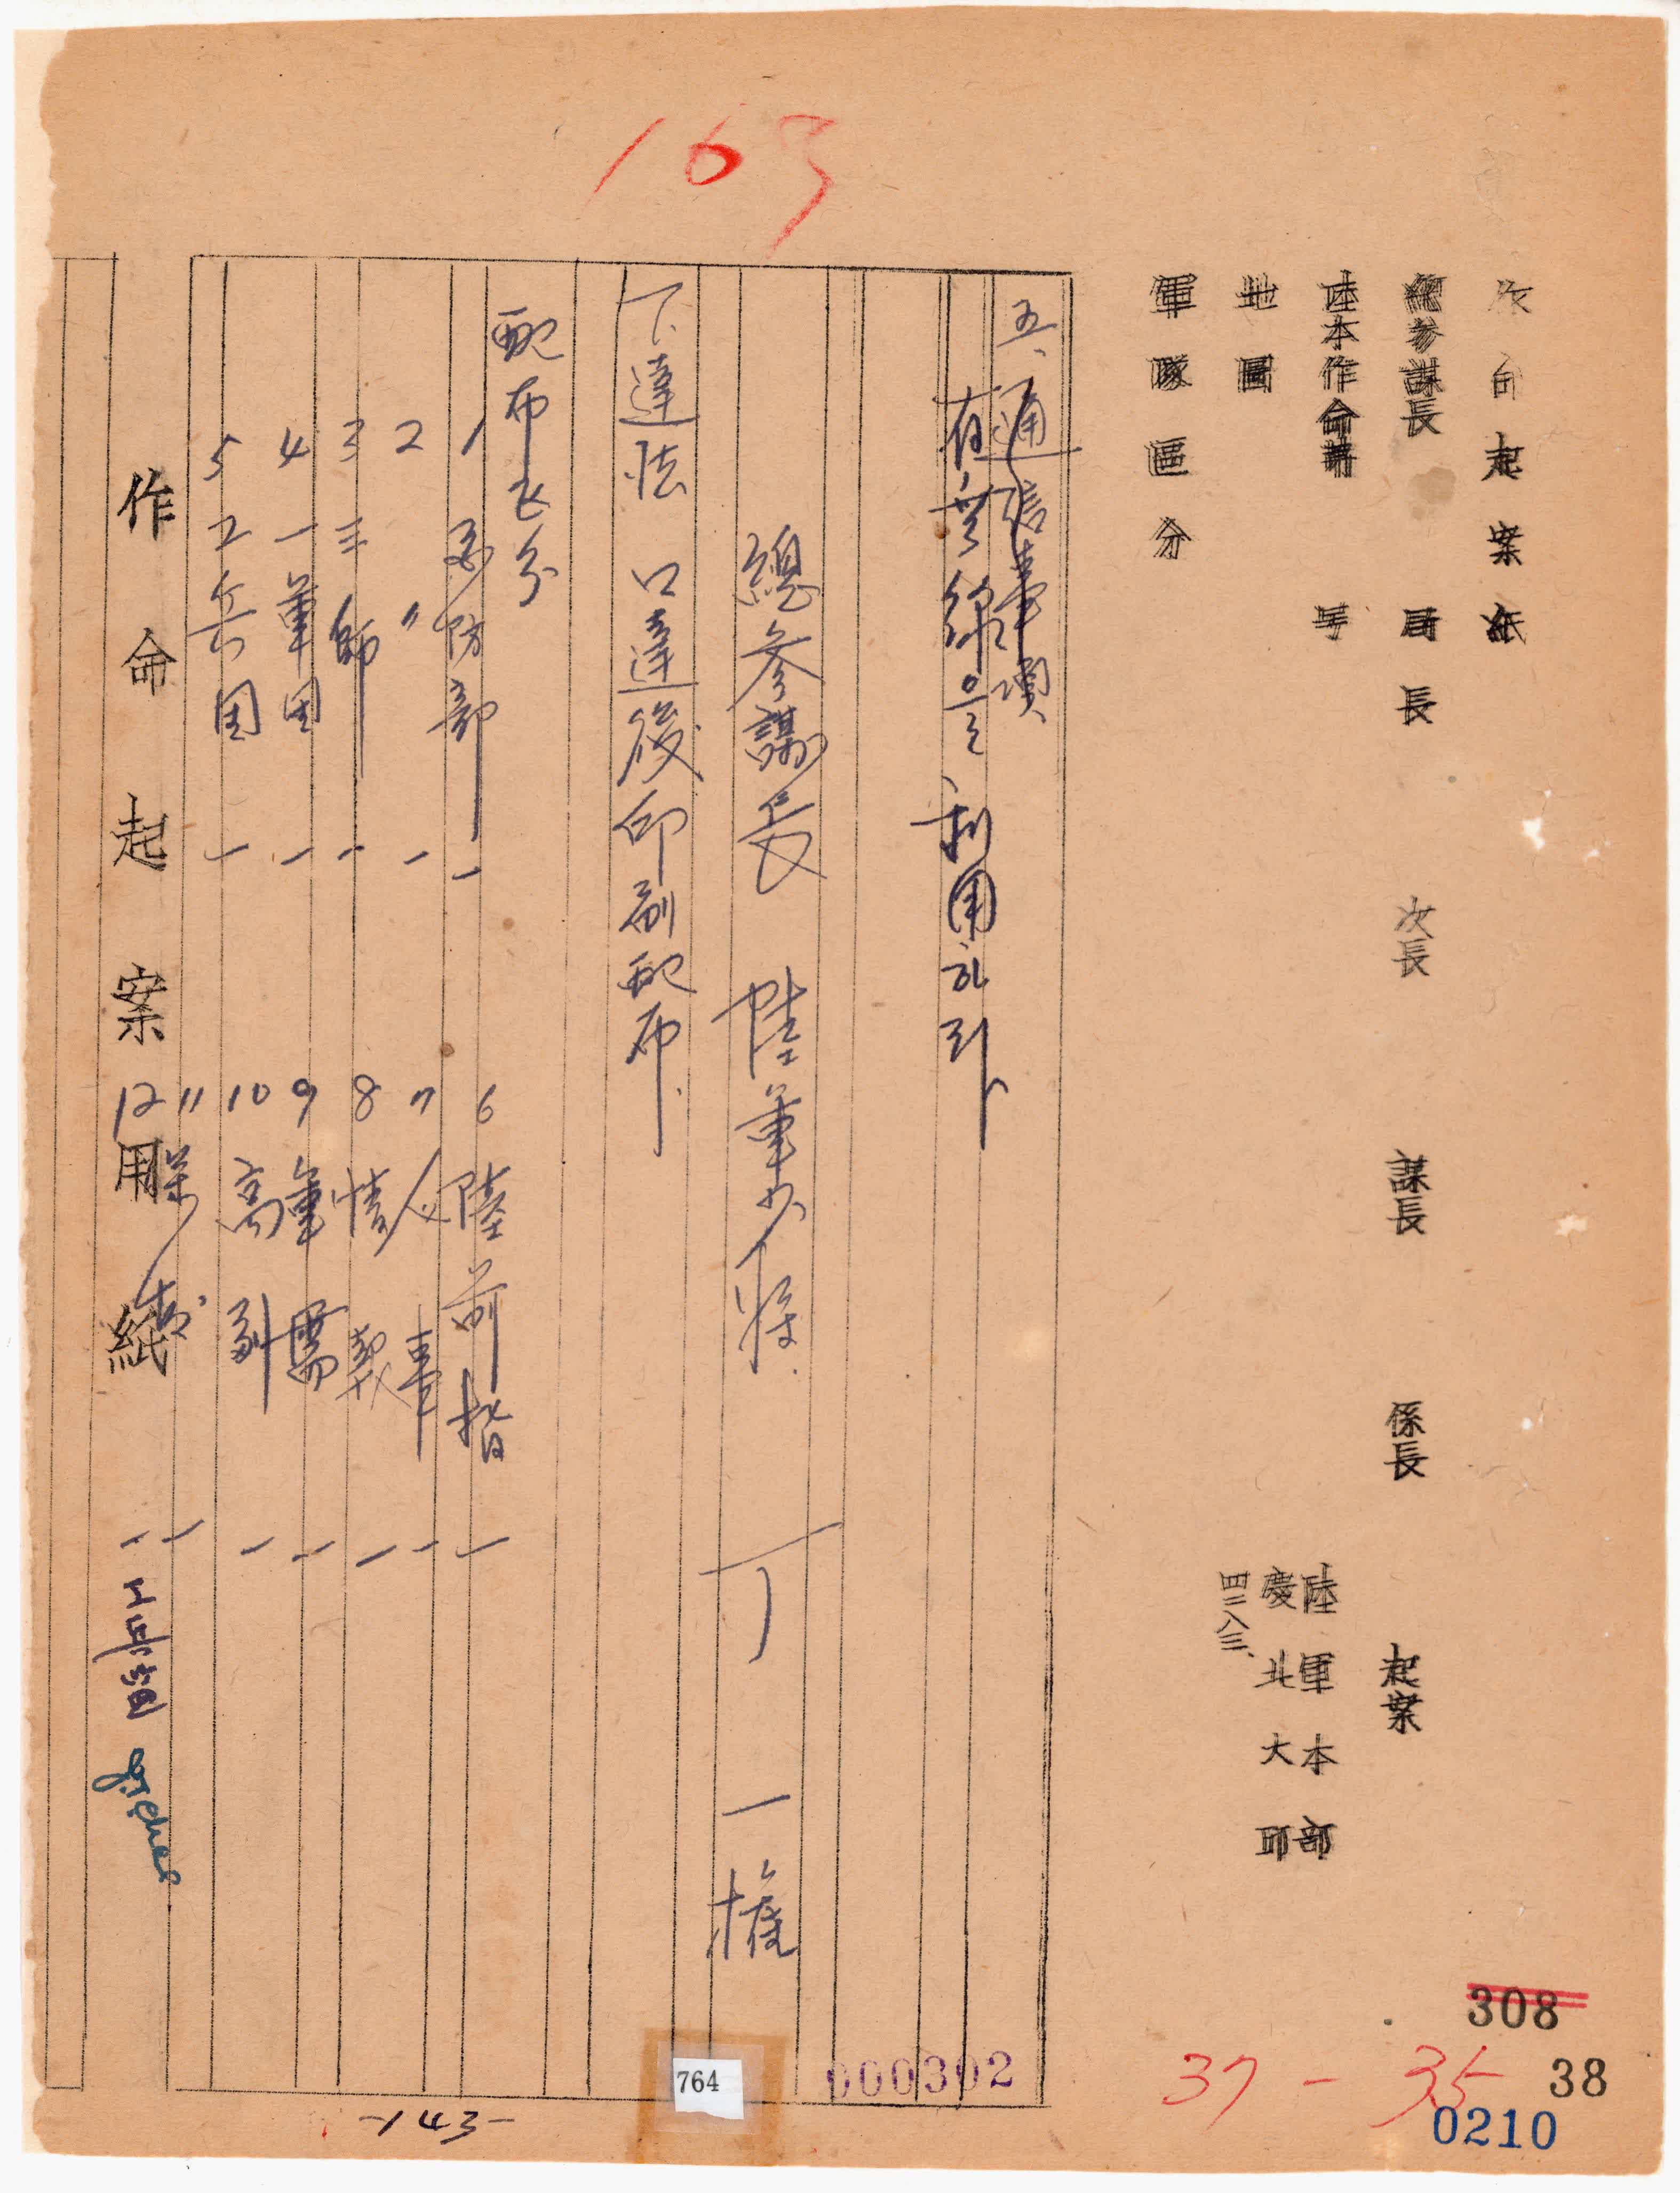 163
作命起案紙
總參謀長 局長 次長 謀長 係長 起案
陸本作命第 号
陸軍本部
慶北大邱
四二八三、
地圖
軍隊區分
五、通信事項
有無線을 利用하라
總參謀長 陸軍少將 丁一權
下達法 口達後印刷配布
配布区分
1 国防部 一
2 〃 一
3 三師 一
4 一軍団 一
5 工兵団 一
6 陸前指 一
7 人事 一
8 情報 一
9 軍需 一
10 高副 一
11 一
12 一
作命起案用紙
308
37-35
38
0210
000302
764
-143-